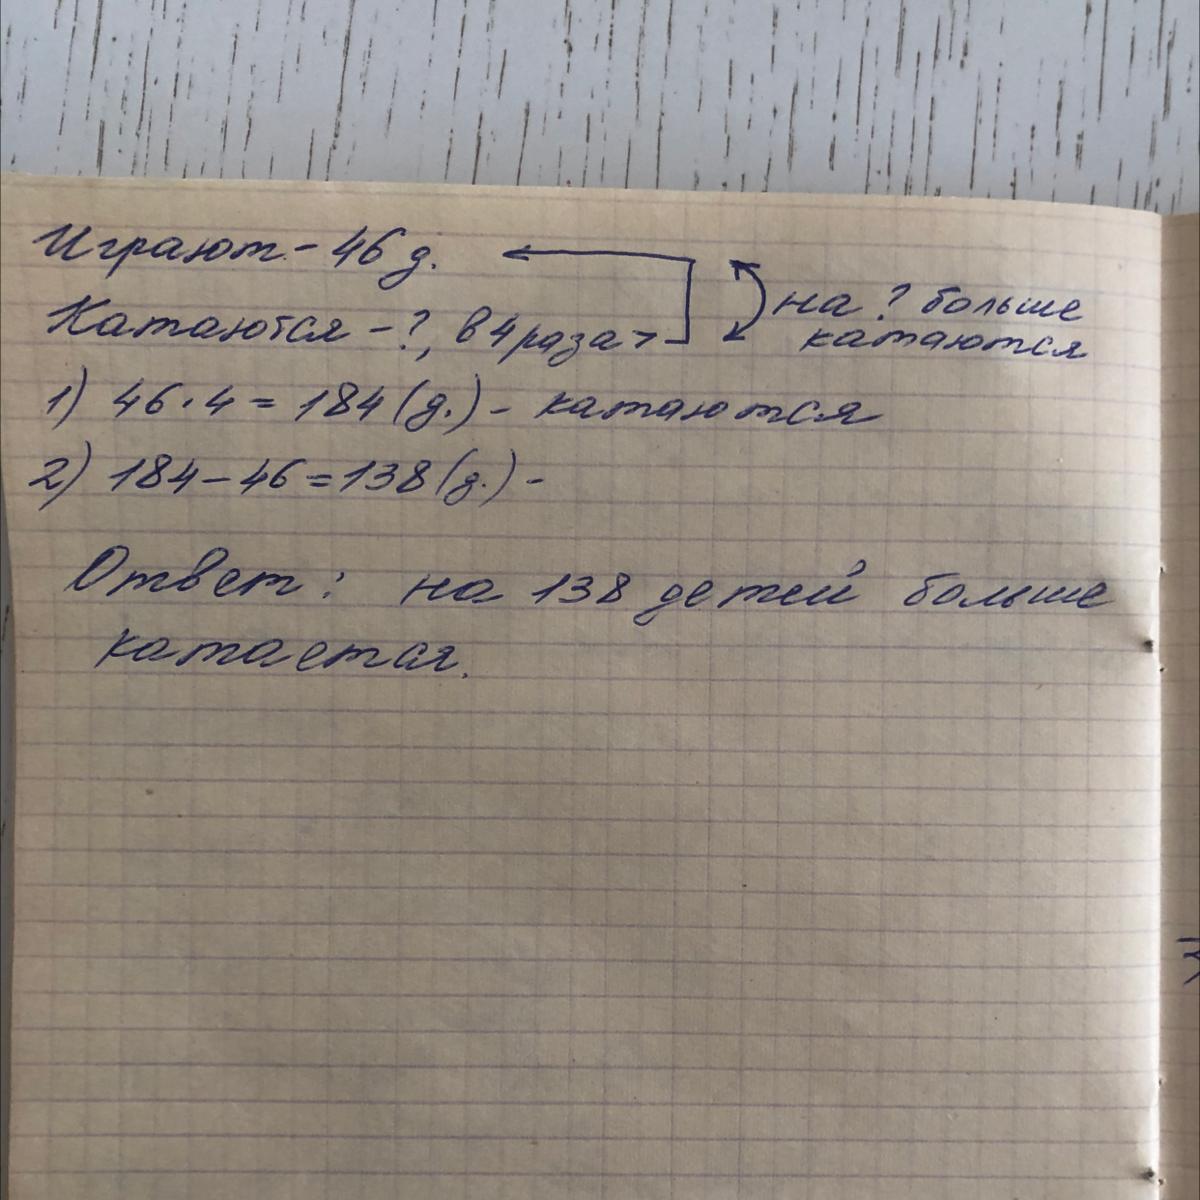 Играют - 46 д.
Катаются - ?, в 4 раза >
на ? больше
катаются
1) 46 · 4 = 184 (д.) - катаются
2) 184 - 46 = 138 (д.) -
Ответ: на 138 детей больше
катается.